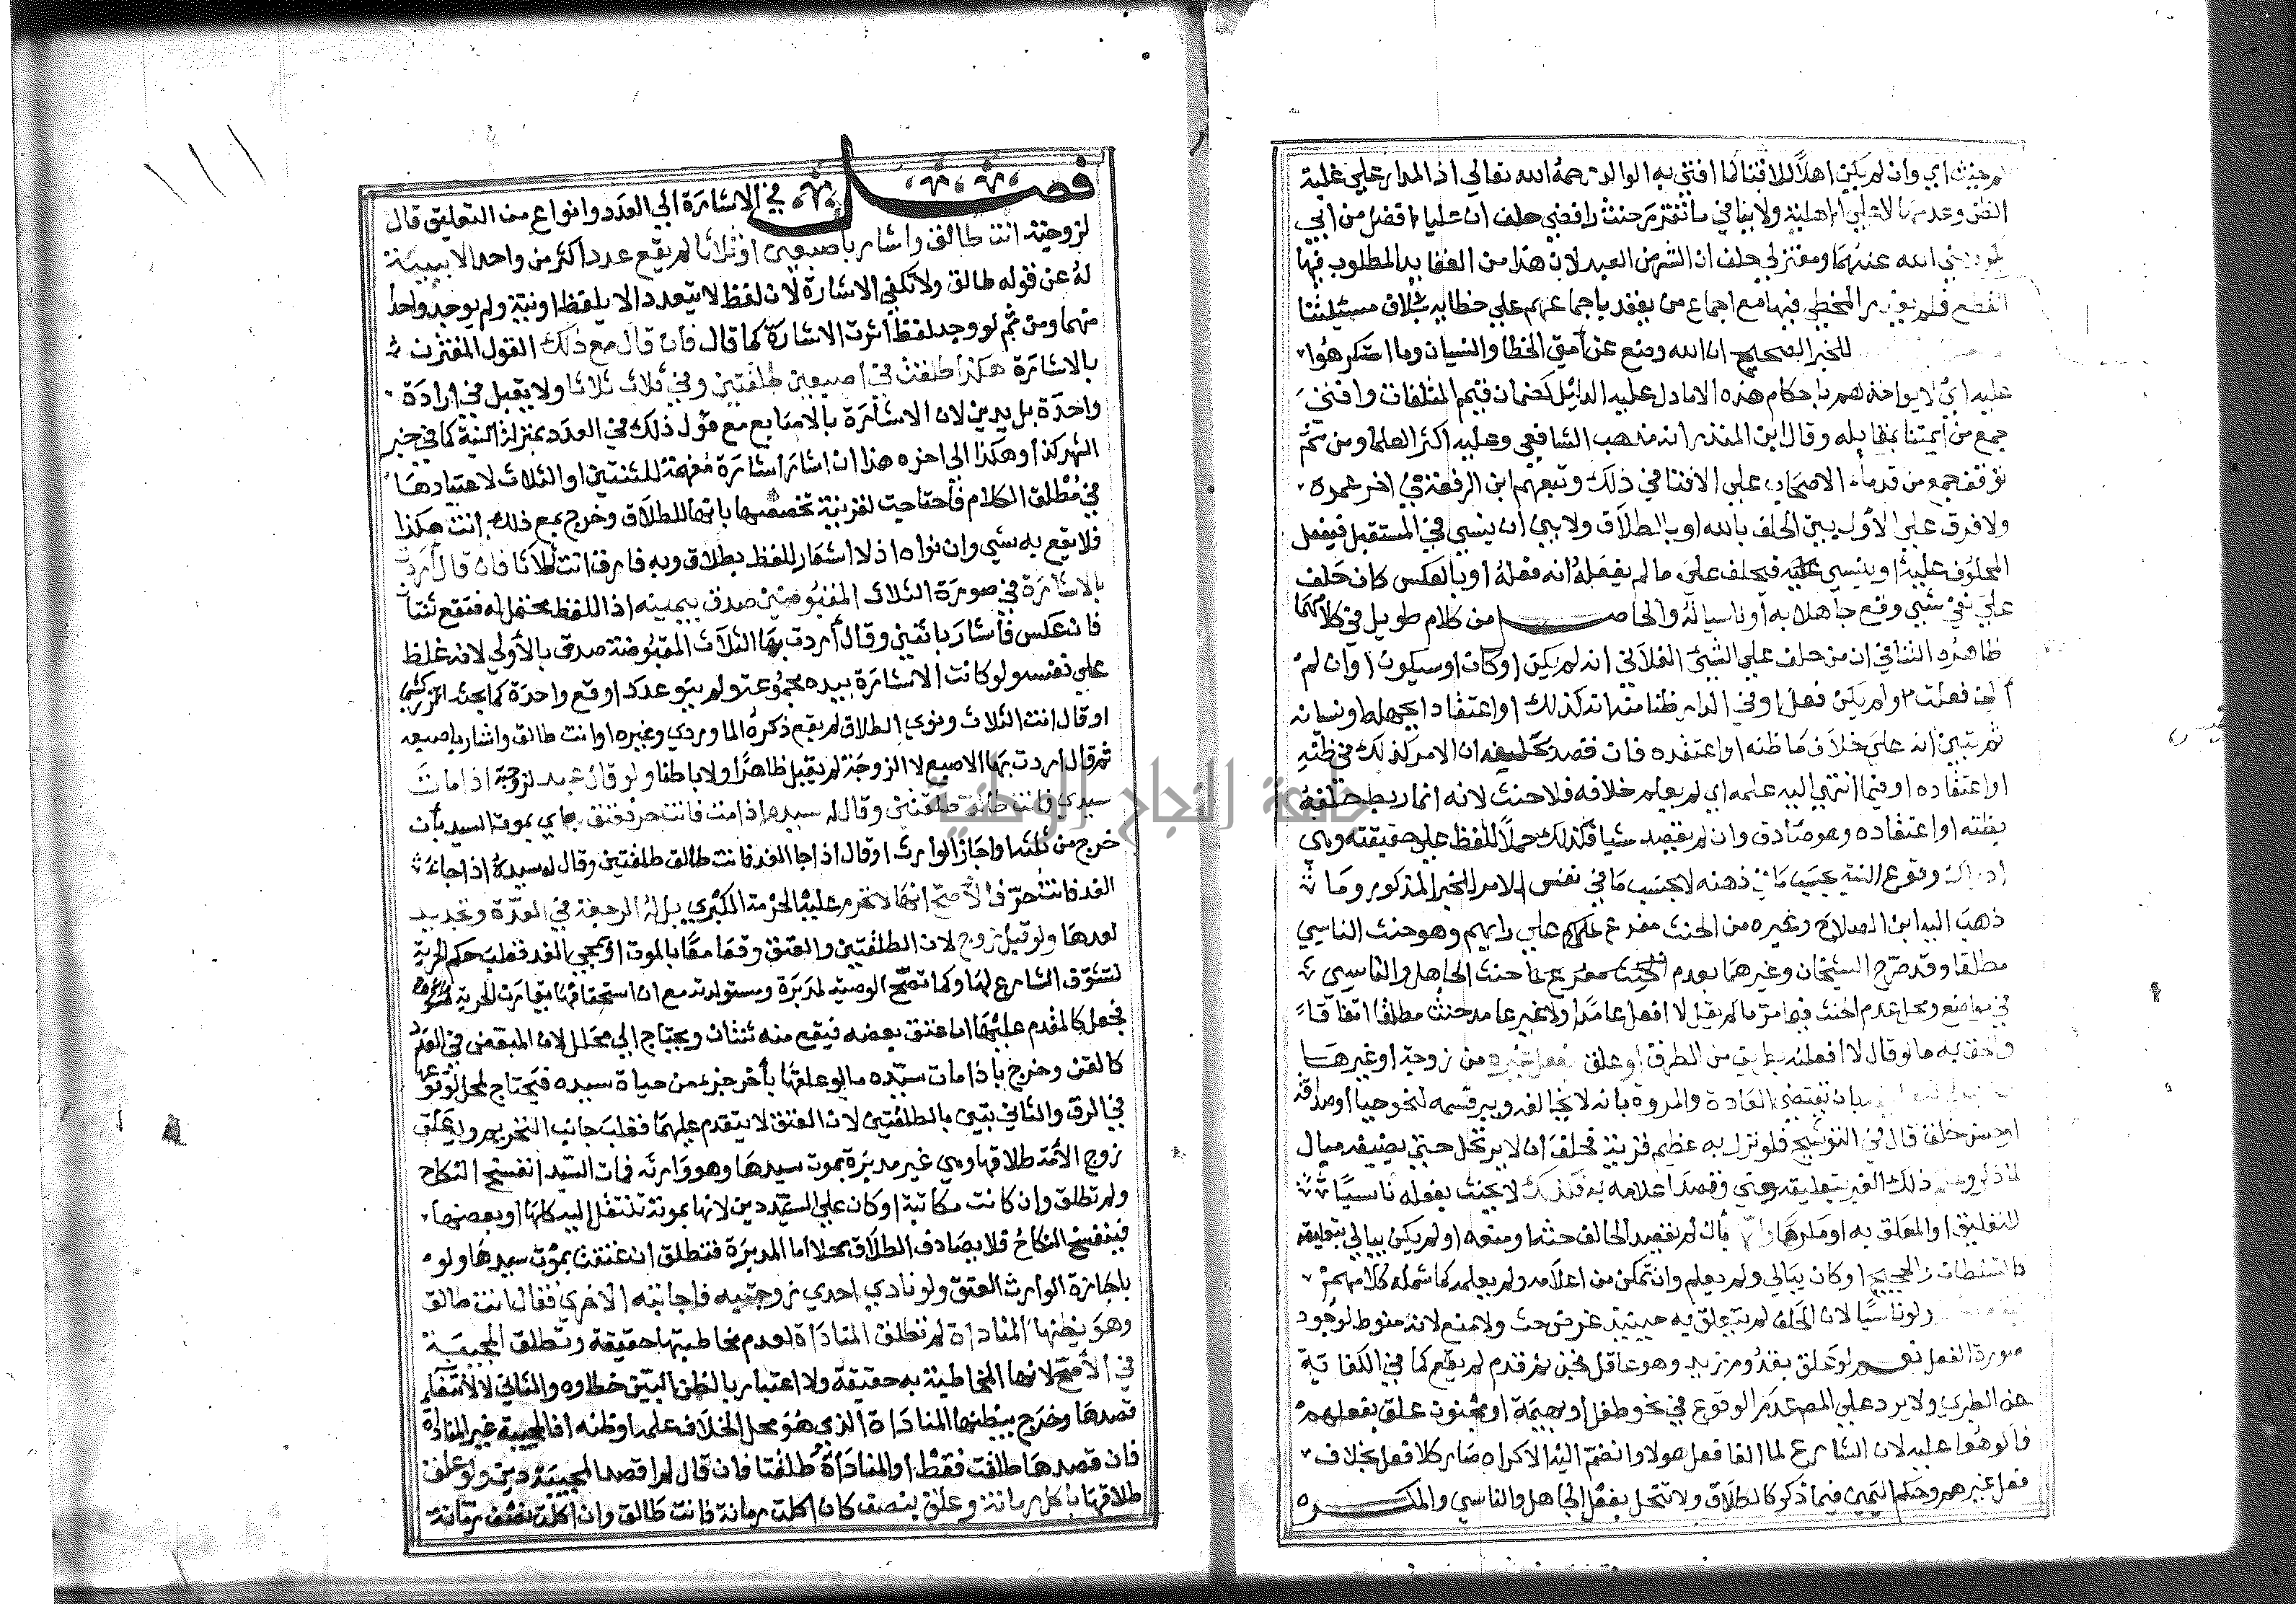 لم يحنث اي وان لم يكن اهلا للافتا لما افتي به الوالد رحمه الله تعالي اذ المدار علي غلبة
الظن وعدمها لا علي الاهلية ولا ينافي ما تقرر حنث رافضي حلف ان عليا افضل من ابي
بكر رضي الله عنهما ومعتزلي حلف ان الشر من العبد لان هذا من العقايد المطلوب فيها
القطع فلم يعذر المخطي فيها مع اجماع من يعتد باجماعهم علي خطايه بخلاف مسئلتنا
للخبر الصحيح ان الله وضع عن امتي الخطا والنسيان وما استكرهوا
عليه اي لا يواخذهم باحكام هذه الا ما دل عليه الدليل كضمان قيم المتلفات وافتي
جمع من ايمتنا بمقابله وقال ابن المنذر انه مذهب الشافعي وعليه اكثر العلما ومن ثم
توقف جمع من قدماء الاصحاب علي الافتا في ذلك وتبعهم ابن الرفعة في اخر عمره
ولا فرق علي الاول بين الحلف بالله او بالطلاق ولا بين ان ينسي في المستقبل فيفعل
المحلوف عليه او ينسي فيحلف علي ما لم يفعله انه فعله او بالعكس كان حلف
علي نفي شي وقع جاهلا به او ناسيا له والحاصل من كلام طويل في كلامهما
ظاهره التنافي ان من حلف علي الشي الفلاني انه لم يكن او كان او سيكون او ان لم
اكن فعلت او لم يكن فعل او في الدار ظنا منه انه كذلك او اعتقادا لجهله او نسيانه
ثم تبين انه علي خلاف ما ظنه او اعتقده فان قصد بحلفه ان الامر كذلك في ظنه
او اعتقاده او فيما انتهي اليه علمه اي لم يعلم خلافه فلا حنث لانه انما ربط حلفه
بظنه او اعتقاده وهو صادق وان لم يقصد شيا فكذلك حملا للفظ علي حقيقته وهي
ادراك وقوع النسبة بحسب ما في ذهنه لا بحسب ما في نفس الامر للخبر المذكور وما
ذهب اليه ابن الصلاح وغيره من الحنث مفرع علي رايهم وهو حنث الناسي
مطلقا وقد صرح الشيخان وغيرهما بعدم حنث الجاهل والناسي
في مواضع ومحل عدم الحنث فيما مر ما لم يقل لا افعل عامدا ولا غير عامد حنث مطلقا اتفاقا
والحق به ما لو قال لا افعله بطريق من الطرق او علق بفعل غيره من زوجة او غيرها
بان تقتضي العادة والمروة بانه لا يخالفه ويبر قسمه لنحو حيا او صداقة
او حسن خلق قال في التوشيح فلو نزل به عظيم قرية فحلف ان لا يرتحل حتي يضيفه مثال
لما ذكر وعلم ذلك الغير بتعليقه يعني وقصد اعلامه به فكذلك لا يحنث بفعله ناسيا
للتعليق او المعلق به او مكرها والا بان لم يقصد الحالف حثه او منعه او لم يكن يبالي بتعليقه
كالسلطان والحجيج او كان يبالي ولم يعلم وان تمكن من اعلامه ولم يعلمه كما شمله كلامهم
ولو ناسيا لان الحلف لم يتعلق به حينيذ غرض حث ولا منع لانه منوط لوجود
صورة الفعل نعم لو علق بقدوم زيد وهو عاقل فجن ثم قدم لم يقع كما في الكفاية
عن الطبري ولا يرد علي المص عدم الوقوع في نحو طفل او بهيمة او مجنون علق بفعلهم
فاكرهوا عليه لان الشارع لما الغا فعل هولا وانضم اليه الاكراه صار كلا فعل بخلاف
فعل غيرهم وحكم اليمين فيما ذكر كالطلاق ولا تنحل بفعل الجاهل والناسي والمكره
فصل في الاشارة الي العدد وانواع من التعليق قال
لزوجته انت طالق واشار باصبعين او ثلاثا لم يقع عدد اكثر من واحد الا بنية
له عن قوله طالق ولا تكفي الاشارة لان لفظ لا يتعدد الا بلفظ او نية ولم يوجد واحد
منهما ومن ثم لو وجد لفظ اثرت الاشارة كما قال فان قال مع ذلك القول المقترن
بالاشارة هكذا طلقت في اصبعين طلقتين وفي ثلاث ثلاثا ولا يقبل في ارادة
واحدة بل يدين لان الاشارة بالاصابع مع قول ذلك في العدد بمنزلة النية كما في خبر
الشهر كذا وهكذا الي اخره هذا ان اشار اشارة مفهمة للثنتين او الثلاث لاعتيادها
في مطلق الكلام فاحتاجت لقرينة تخصصها بانها للطلاق وخرج بمع ذلك انت هكذا
فلا يقع به شي وان نواه اذ لا اشعار للفظ بطلاق وبه فارق انت ثلاثا فان قال اردت
بالاشارة في صورة الثلاث المقبوضتين صدق بيمينه اذ اللفظ يحتمله فتقع ثنتان
فان عكس فاشار باثنين وقال اردت بها الثلاث المقبوضة صدق بالاولي لانه غلظ
علي نفسه ولو كانت الاشارة بيده مجموعة ولم ينو عددا وقع واحدة كما بحثه الزركشي
او قال انت الثلاث ونوي الطلاق لم يقع ذكره الماوردي وغيره او انت طالق واشار باصبعه
ثم قال اردت بها الاصبع لا الزوجة لم يقبل ظاهرا ولا باطنا ولو قال عبد لزوجته اذا مات
سيدي فانت طالق طلقتين وقال له سيده اذا مت فانت حر فعتق به اي بموت السيد بان
خرج من ثلثه او اجاز الوارث او قال اذا جا الغد فانت طالق طلقتين وقال له سيده اذا جاء
الغد فانت حر فالاصح انها لا تحرم عليه الحرمة الكبري بل له الرجعة في العدة وتجديد
بعدها ولو قبل زوج لان الطلقتين والعتق وقعا معا بالموت او بمجي الغد فغلب حكم الحرية
لتشوف الشارع لها وكما تصح الوصية لمدبرة ومستولدته مع ان استحقاقها يقارن الحرية
فجعل كالمقدم عليها اما عتق بعضه فيقع منه ثنتان ويحتاج الي محلل لان المبعض في العدد
كالقن وخرج باذا مات سيده ما لو علقها باخر جزء من حياة سيده فيحتاج لمحلل لوقوعها
في الرق والثاني تبين بالطلقتين لان العتق لا يتقدم عليهما فغلب جانب التحريم ولو علق
زوج الامة طلاقها وهي غير مدبرة بموت سيدها وهو وارثه فمات السيد انفسخ النكاح
ولم تطلق وان كانت مكاتبة او كان علي السيد دين لانها بموته تنتقل اليه كلها او بعضها
فينفسخ النكاح فلا يصادف الطلاق محلا اما المدبرة فتطلق ان عتقت بموت سيدها ولو
باجازة الوارث العتق ولو نادي احدي زوجتيه فاجابته الاخري فقال انت طالق
وهو يظنها المناداة لم تطلق المناداة لعدم مخاطبتها حقيقة وتطلق المجيبة
في الاصح لانها المخاطبة به حقيقة ولا اعتبار بالظن البين خطاوه والثاني لا لانتفاء
قصدها وخرج بيظنها المناداة الذي هو محل الخلاف علمه او ظنه ان المجيبة غير المناداة
فان قصدها طلقت فقط او المناداة طلقتا فان قال لم اقصد المجيبة دين ولو علق
طلاقها باكل رمانة وعلق بنصف كان اكلت رمانة فانت طالق وان اكلت نصف رمانة
جامعة النجاح الوطنية
١١١